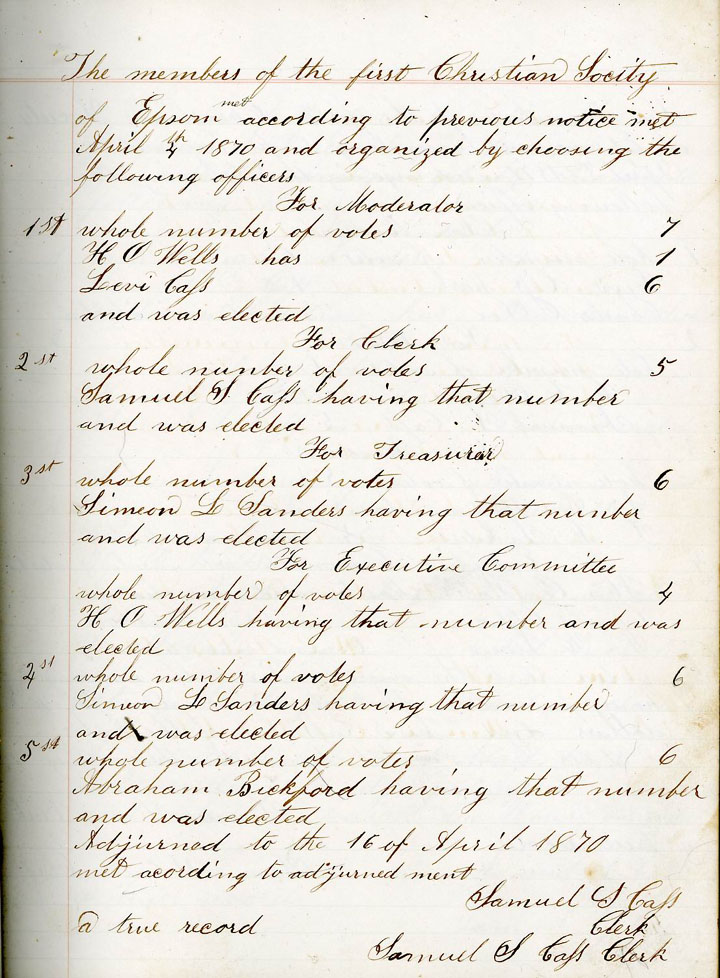 The members of the first Christian Socity
of Epsom met according to previous notice met
April 4th 1870 and organized by choosing the
following officers
For Moderator
1st whole number of votes 7
H O Wells has 1
Levi Cass 6
and was elected
For Clerk
2st whole nunber of votes 5
Samuel S Cass having that number
and was elected
For Treasurer
3st whole number of votes 6
Simeon L Sanders having that nunber
and was elected
For Executive Committee
whole number of votes 4
H O Wells having that number and was
elected
4st whole number of votes 6
Simeon L Sanders having that number
and was elected
5st whole number of votes 6
Abraham Bickford having that number
and was elected
Adjurned to the 16 of April 1870
met acording to adjurned ment
Samuel S Cass
Clerk
a true record
Samuel S Cass Clerk